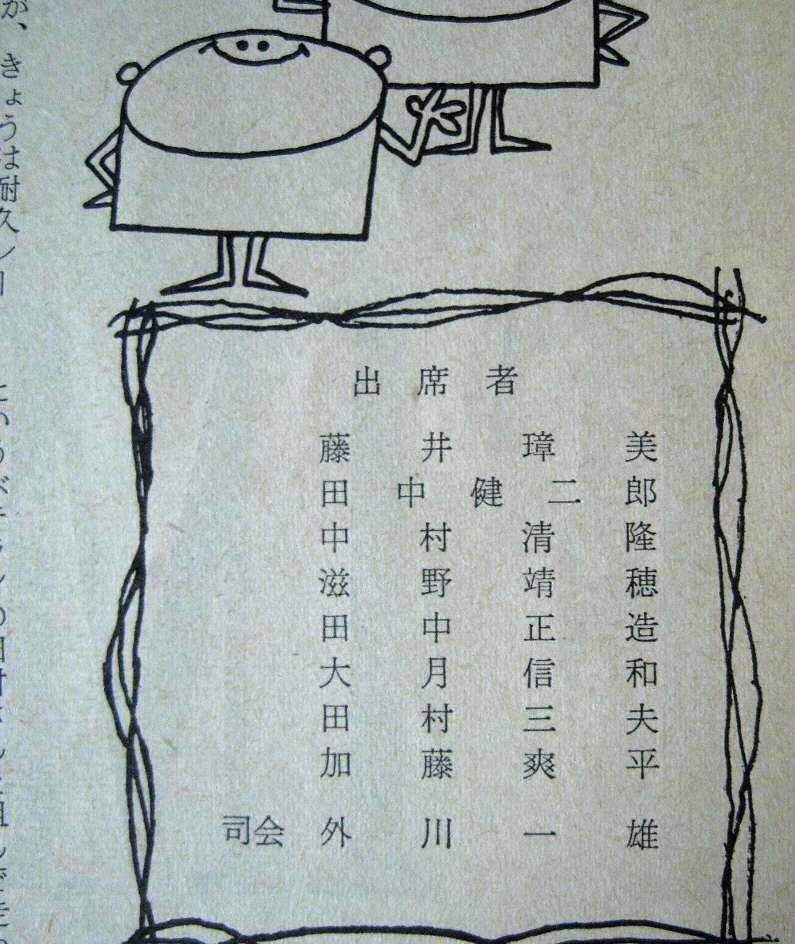 が、きょうは耐久レー
出席者
藤井璋美
田中健二郎
中村清隆
滋野靖穂
田中正造
大月信和
田村三夫
加藤爽平
司会 外川一雄